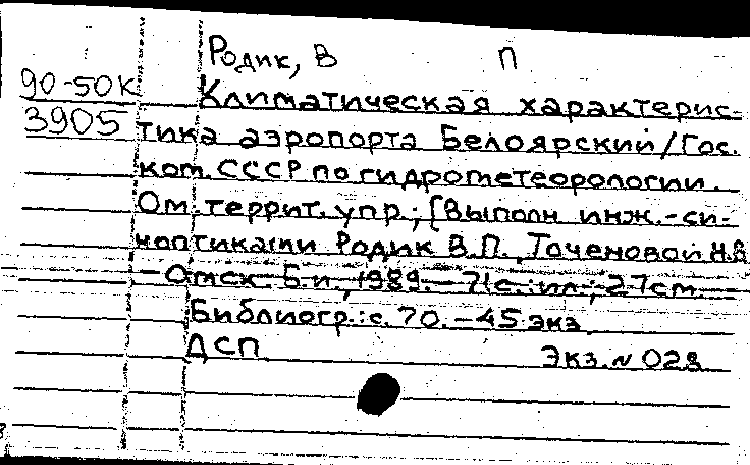 Родик, В П
90-50К
Климатическая характерис-
3905
тика аэропорта Белоярский/Гос.
ком. СССР по гидрометеорологии.
Ом. террит. упр.; [Выполн инж.-си-
ноптиками Родик В.П., Точеновой Н.В
— Омск: Б.и., 1989.— 71с.:ил.; 27см.—
Библиогр.: с. 70. — 45 экз
ДСП Экз. № 028